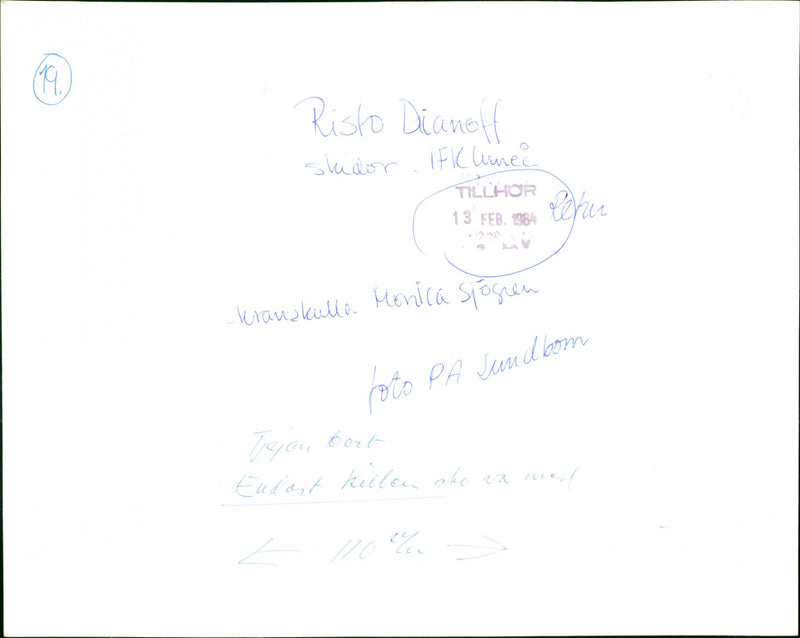 19.
Risto Dianoff
skidor. IFK Umeå
TILLHÖR
13 FEB. 1984
Retur
kranskulla Monica Sjögren
foto PA Sundbom
Tjejen bort
Endast killen ska va med
← 110 m/m →